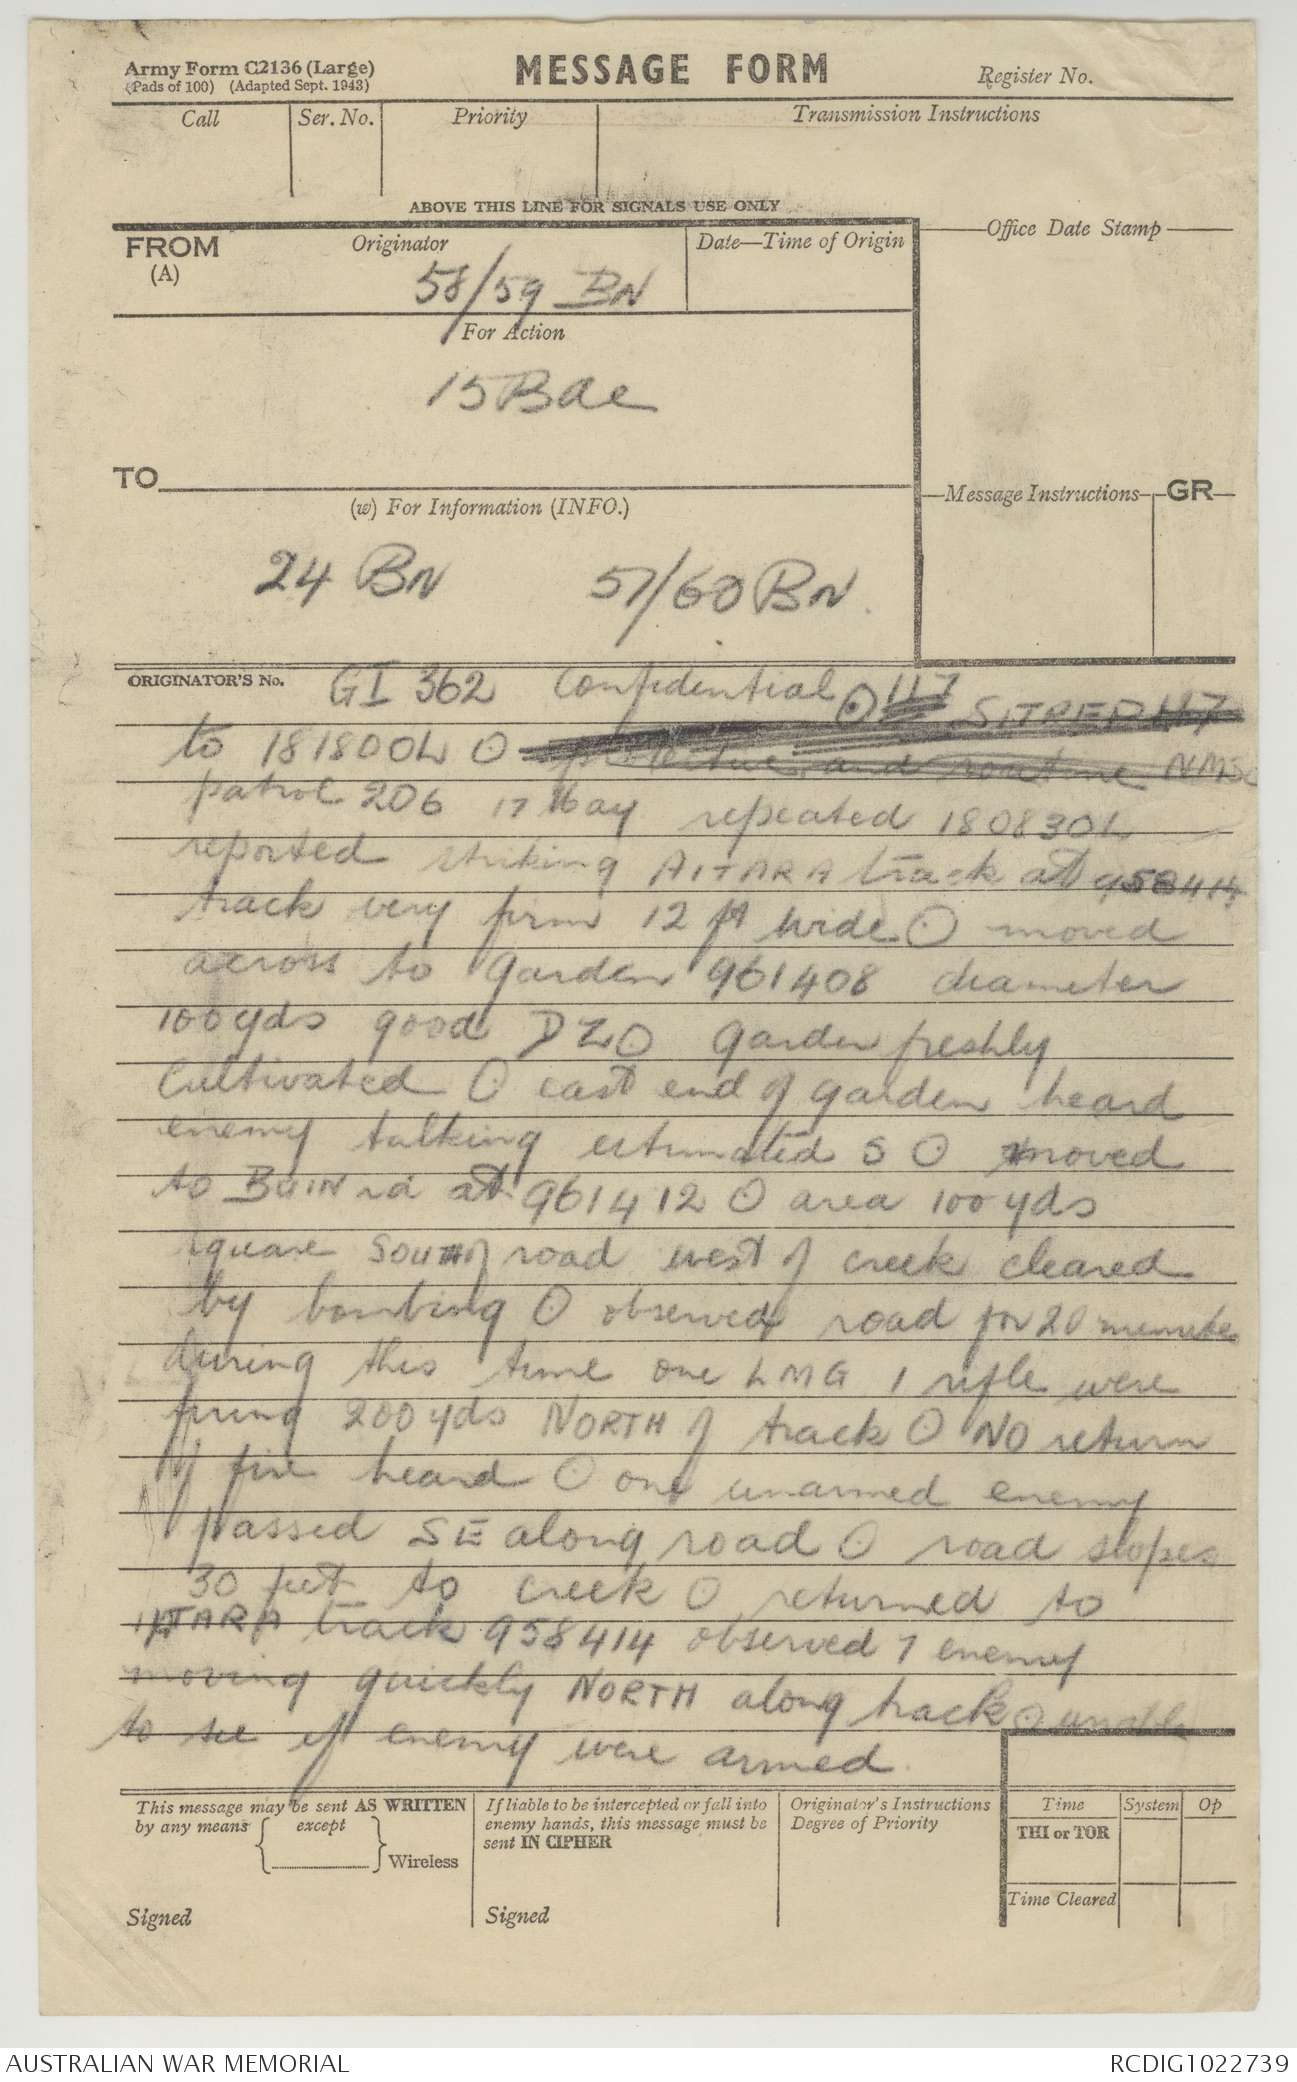 Army Form C2136 (Large)
(Pads of 100) (Adapted Sept. 1943)
MESSAGE FORM
Register No.
Call
Ser. No.
Priority
Transmission Instructions
ABOVE THIS LINE FOR SIGNALS USE ONLY
FROM
(A)
Originator
58/59 BN
Date—Time of Origin
Office Date Stamp
For Action
15 Bde
TO
(w) For Information (INFO.)
24 BN 57/60 BN.
Message Instructions
GR
ORIGINATOR'S No. GI 362 Confidential ⊙ 117 SITREP 117
to 181800L ⊙ protective and routine
patrol 206 17 May repeated 180830L
reported striking AITARA track at 958414
track very firm 12 ft wide ⊙ moved
across to garden 961408 diameter
100 yds good DZ ⊙ garden freshly
cultivated ⊙ east end of garden heard
enemy talking estimated 5 ⊙ moved
to BUIN rd at 961412 ⊙ area 100 yds
square SOUTH of road west of creek cleared
by bombing ⊙ observed road for 20 minutes
during this time one LMG 1 rifle were
firing 200 yds NORTH of track ⊙ NO return
of fire heard ⊙ one unarmed enemy
passed SE along road ⊙ road slopes
30 feet to creek ⊙ returned to
AITARA track 958414 observed 7 enemy
moving quickly NORTH along track ⊙ unable
to see if enemy were armed.
This message may be sent AS WRITTEN
by any means except
Wireless
Signed
If liable to be intercepted or fall into
enemy hands, this message must be
sent IN CIPHER
Signed
Originator's Instructions
Degree of Priority
Time
System
Op
THI or TOR
Time Cleared
AUSTRALIAN WAR MEMORIAL
RCDIG1022739